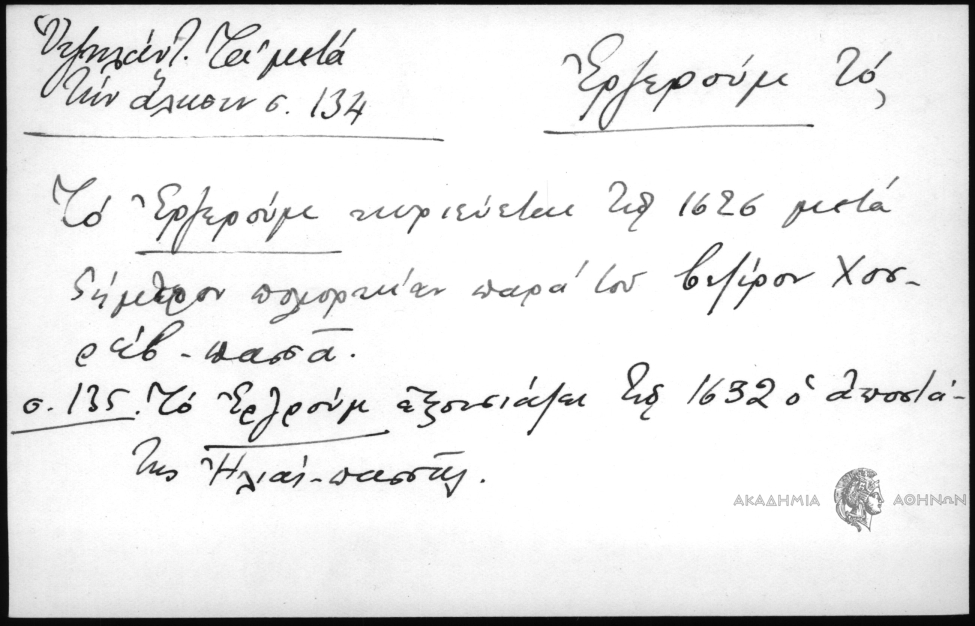 Ὑψηλάντ. Τά μετά
τήν ἅλωσιν σ. 134
Ἐρζερούμ τό,
Τό Ἐρζερούμ κυριεύεται τῷ 1626 μετά
δίμηνον πολιορκίαν παρά τοῦ βεζίρου Χοσ-
ρέβ-πασσᾶ.
σ. 135. Τό Ἐρζρούμ ἐξουσιάζει τῷ 1632 ὁ ἀποστά-
της Ἠλιάζ-πασσᾶς.
ΑΚΑΔΗΜΙΑ ΑΘΗΝΩΝ